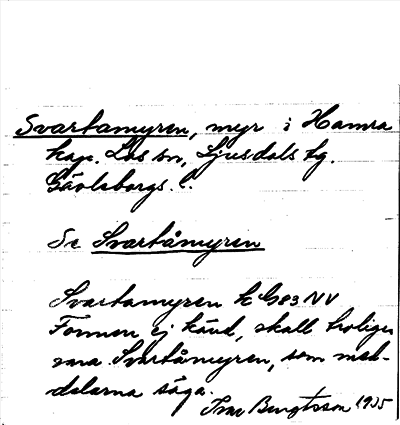 Svartamyren, myr i Hamra
kap. Los sn, Ljusdals tg.
Gävleborgs l.
Se Svartåmyren
Svartamyren k G83 NV
Formen ej känd, skall troligen
vara Svartåmyren, som med-
delarna säga.
Ivar Bengtsson 1935